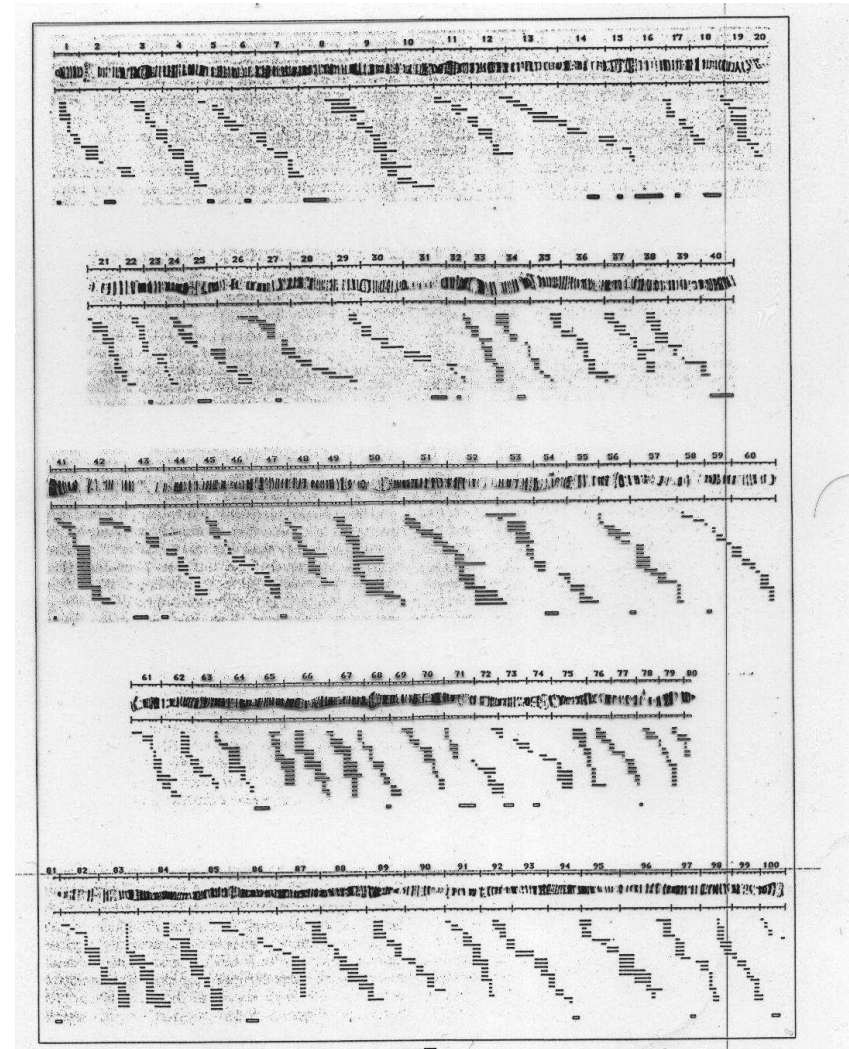 1 2 3 4 5 6 7 8 9 10 11 12 13 14 15 16 17 18 19 20
21 22 23 24 25 26 27 28 29 30 31 32 33 34 35 36 37 38 39 40
41 42 43 44 45 46 47 48 49 50 51 52 53 54 55 56 57 58 59 60
61 62 63 64 65 66 67 68 69 70 71 72 73 74 75 76 77 78 79 80
81 82 83 84 85 86 87 88 89 90 91 92 93 94 95 96 97 98 99 100